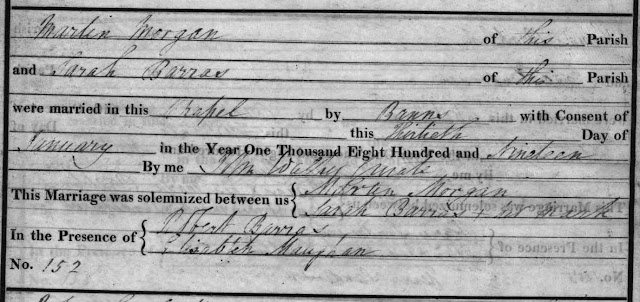 Martin Morgan of this Parish
and Sarah Barras of this Parish
were married in this Chapel by Banns with Consent of
this Thirtieth Day of
January in the Year One Thousand Eight Hundred and Nineteen
By me Curate
This Marriage was solemnized between us Martin Morgan
Sarah Barras mark
In the Presence of Robert Barras
Elizabeth Maughan
No. 152